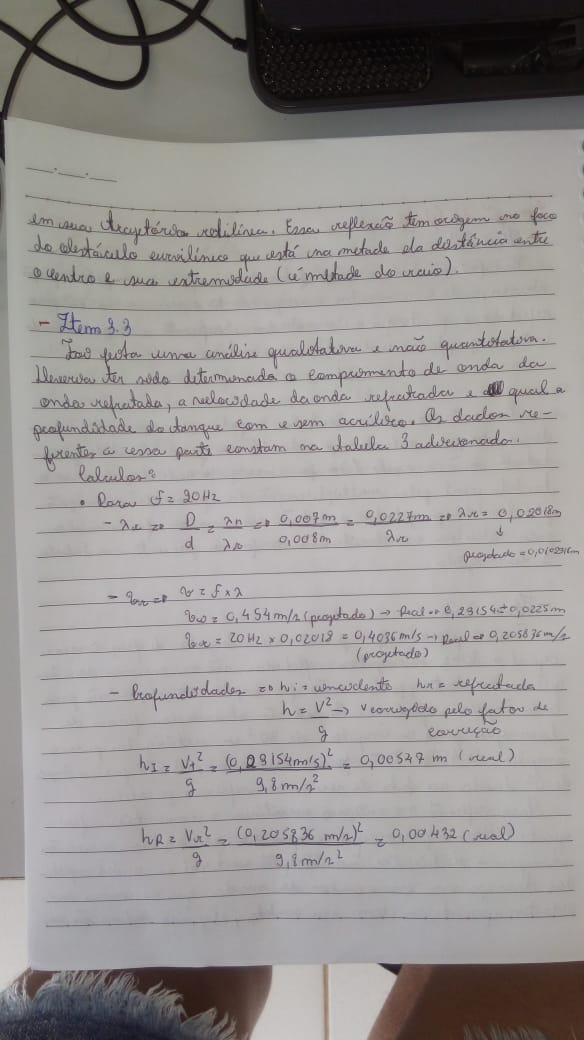 em sua trajetória retilínea. Essa reflexão tem origem no foco
do obstáculo curvilíneo que está na metade da distância entre
o centro e sua extremidade (é metade do raio).
- Item 3.3
Foi feita uma análise qualitativa e não quantitativa.
Deveria ter sido determinada o comprimento de onda da
onda refratada, a velocidade da onda refratada e qual a
profundidade do tanque com e sem acrílico. Os dados re-
ferentes a essa parte constam na tabela 3 adicionado.
Calculos:
• Para f = 20Hz
- λr => D/d = λn/λr => 0,007m/0,008m = 0,0227m/λr => λr = 0,02018m
↓
projetado = 0,0102916m
- vr => v = f × λ
= 0,454m/s (projetado) → Real => 0,23154 ± 0,0225m
vr = 20Hz × 0,02018 = 0,4036m/s → Real => 0,205836m/s
(projetado)
- Profundidades => hi = incidente hr = refratada
h = V²/g → V corrigido pelo fator de
correção
hI = VI²/g = (0,23154m/s)²/9,8m/s² = 0,00547 m (real)
hR = Vr²/g = (0,205836 m/s)²/9,8m/s² = 0,00432 (real)